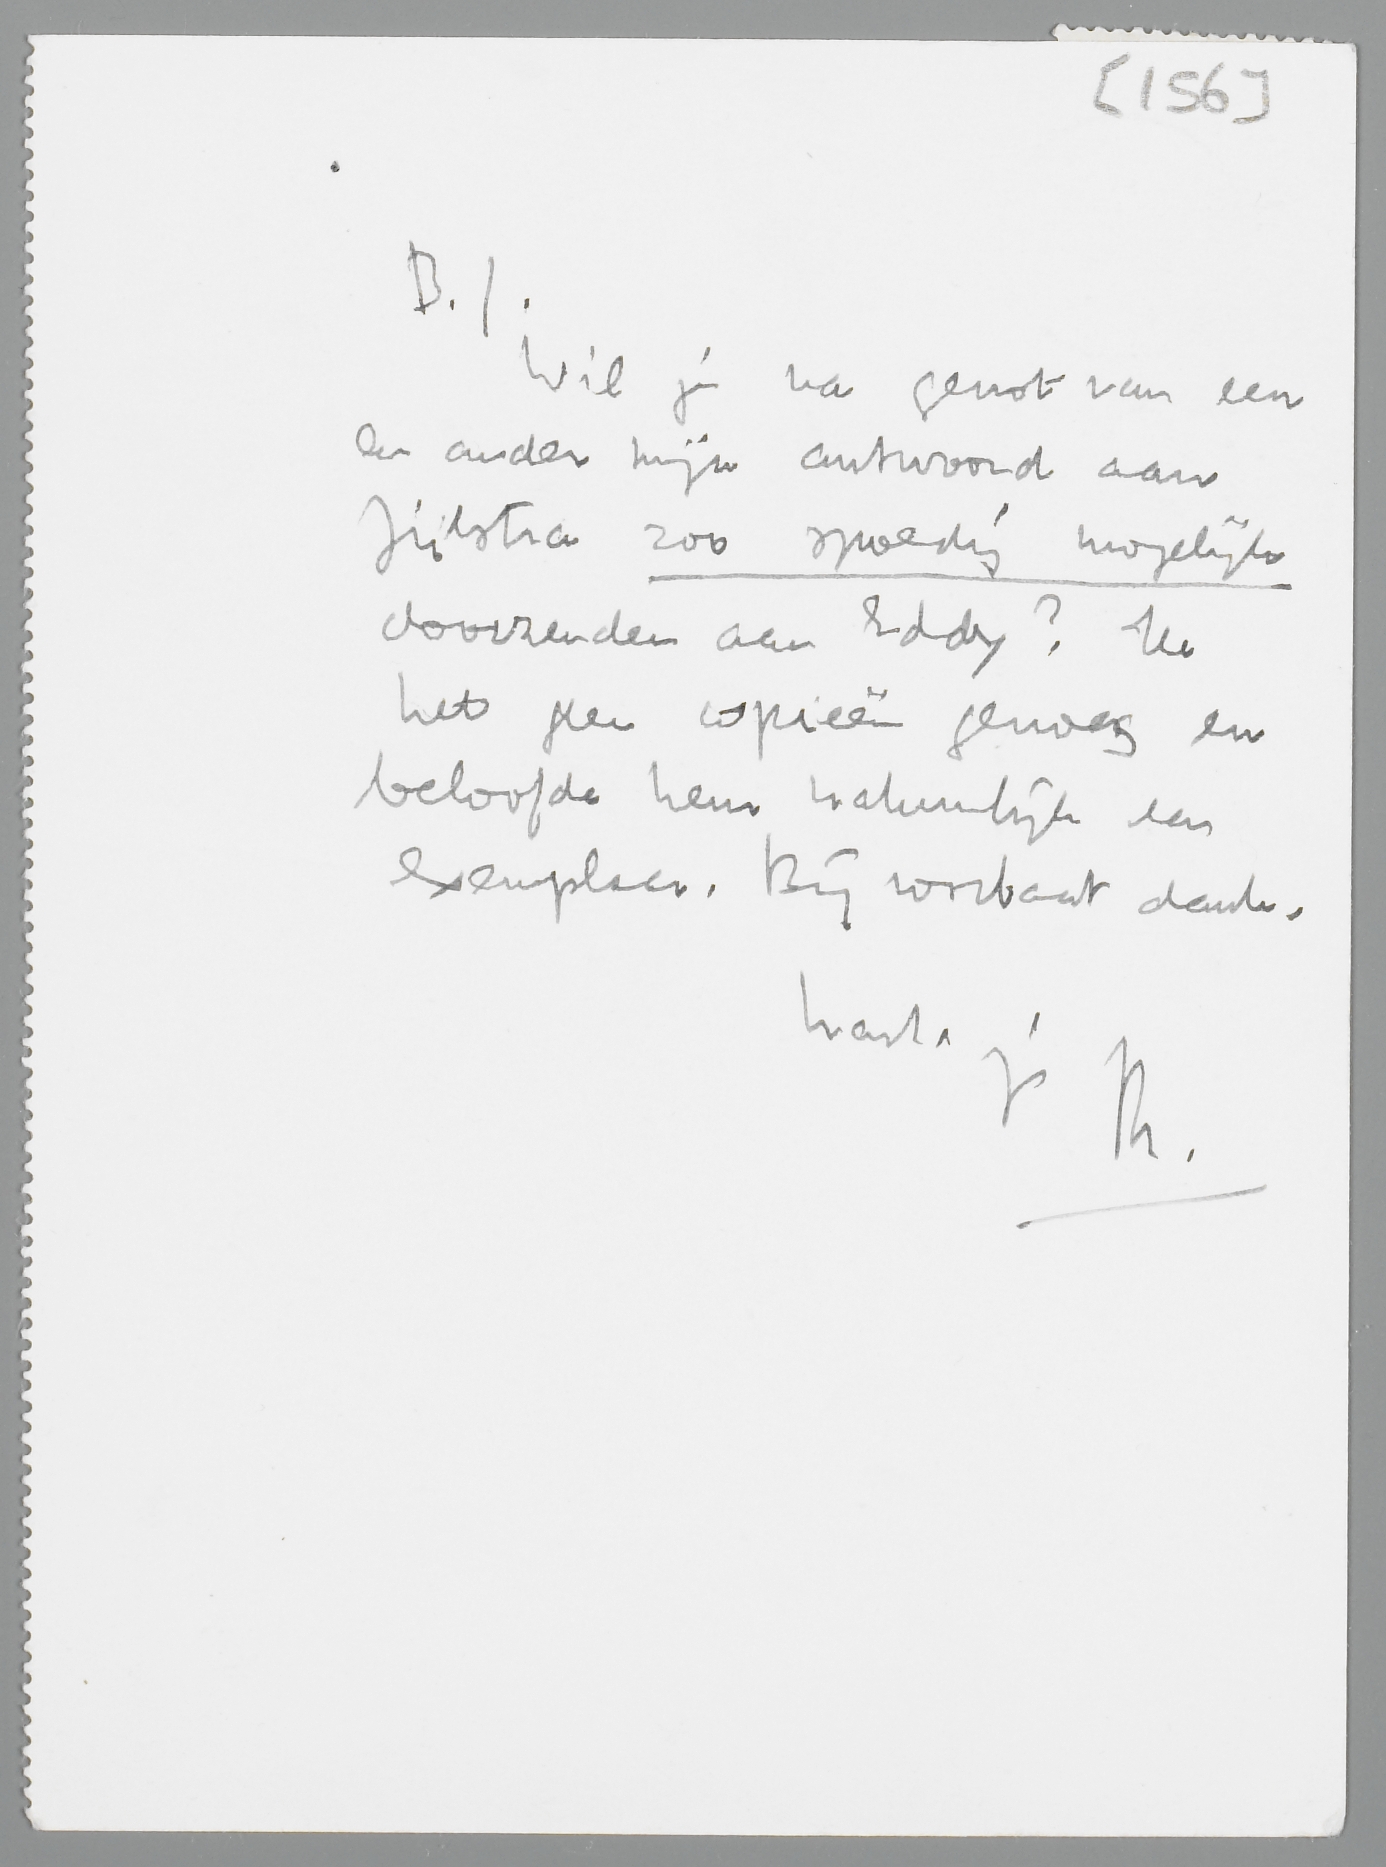 [156]
B. J.
Wil je na genot van een
en ander mijn antwoord aan
Zijlstra zoo spoedig mogelijk
doorzenden aan Eddy? Ik
heb geen copieën genoeg en
beloofde hem natuurlijk een
exemplaar. Bij voorbaat dank.
hart. je